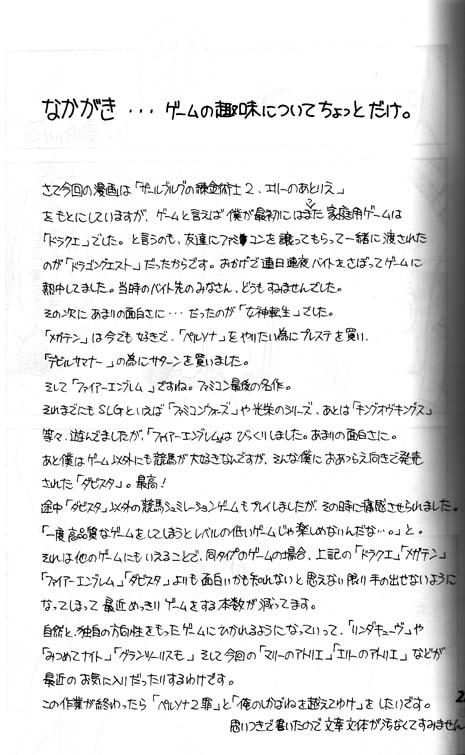 なかがき・・・ゲームの趣味についてちょっとだけ。
さて今回の漫画は「ザールブルグの錬金術士2、エリーのあとりえ」
をもとにしていますが、ゲームと言えば僕が最初にはまた家庭用ゲームは
ッ
「ドラクエ」でした。と言うのも、友達にファミコンを譲ってもらって一緒に渡された
のが「ドラゴンクエスト」だったからです。おかげで連日連夜バイトをさぼってゲームに
熱中してました。当時のバイト先のみなさん、どうもすみませんでした。
その次にあまりの面白さに・・・だったのが「女神転生」でした。
「メガテン」は今でも好きで、「ペルソナ」をやりたい為にプレステを買い、
「デビルサマナー」の為にサターンを買いました。
そして「ファイアーエンブレム」ですね。ファミコン最後の名作。
それまでにもSLGといえば「ファミコンウォーズ」や光栄のシリーズ、あとは「キングオヴキングス」
等々、遊んでましたが、「ファイアーエンブレム」はびっくりしました。あまりの面白さに。
あと僕はゲーム以外にも競馬が大好きなんですが、そんな僕におあつらえ向きで発売
された「ダビスタ」。最高!
途中「ダビスタ」以外の競馬シュミレーションゲームもプレイしましたが、その時に痛感させられました。
「一度高品質なゲームをしてしまうとレベルの低いゲームじゃ楽しめないんだな…。」と。
それは他のゲームにもいえることで、同タイプのゲームの場合、上記の「ドラクエ」「メガテン」
「ファイアーエンブレム」「ダビスタ」よりも面白いかも知れないと思えない限り手の出せないように
なってしまって最近めっきりゲームをする本数が減ってます。
自然と、独自の方向性をもったゲームにひかれるようになっていって、「リンダキューヴ」や
「みつめてナイト」「グランツーリスモ」そして今回の「マリーのアトリエ」「エリーのアトリエ」などが
最近のお気に入りだったりするわけです。
この作業が終わったら「ペルソナ2罪」と「俺のしかばねを越えてゆけ」をしたいです。
思いつきで書いたので文章文体が汚なくてすみません
2